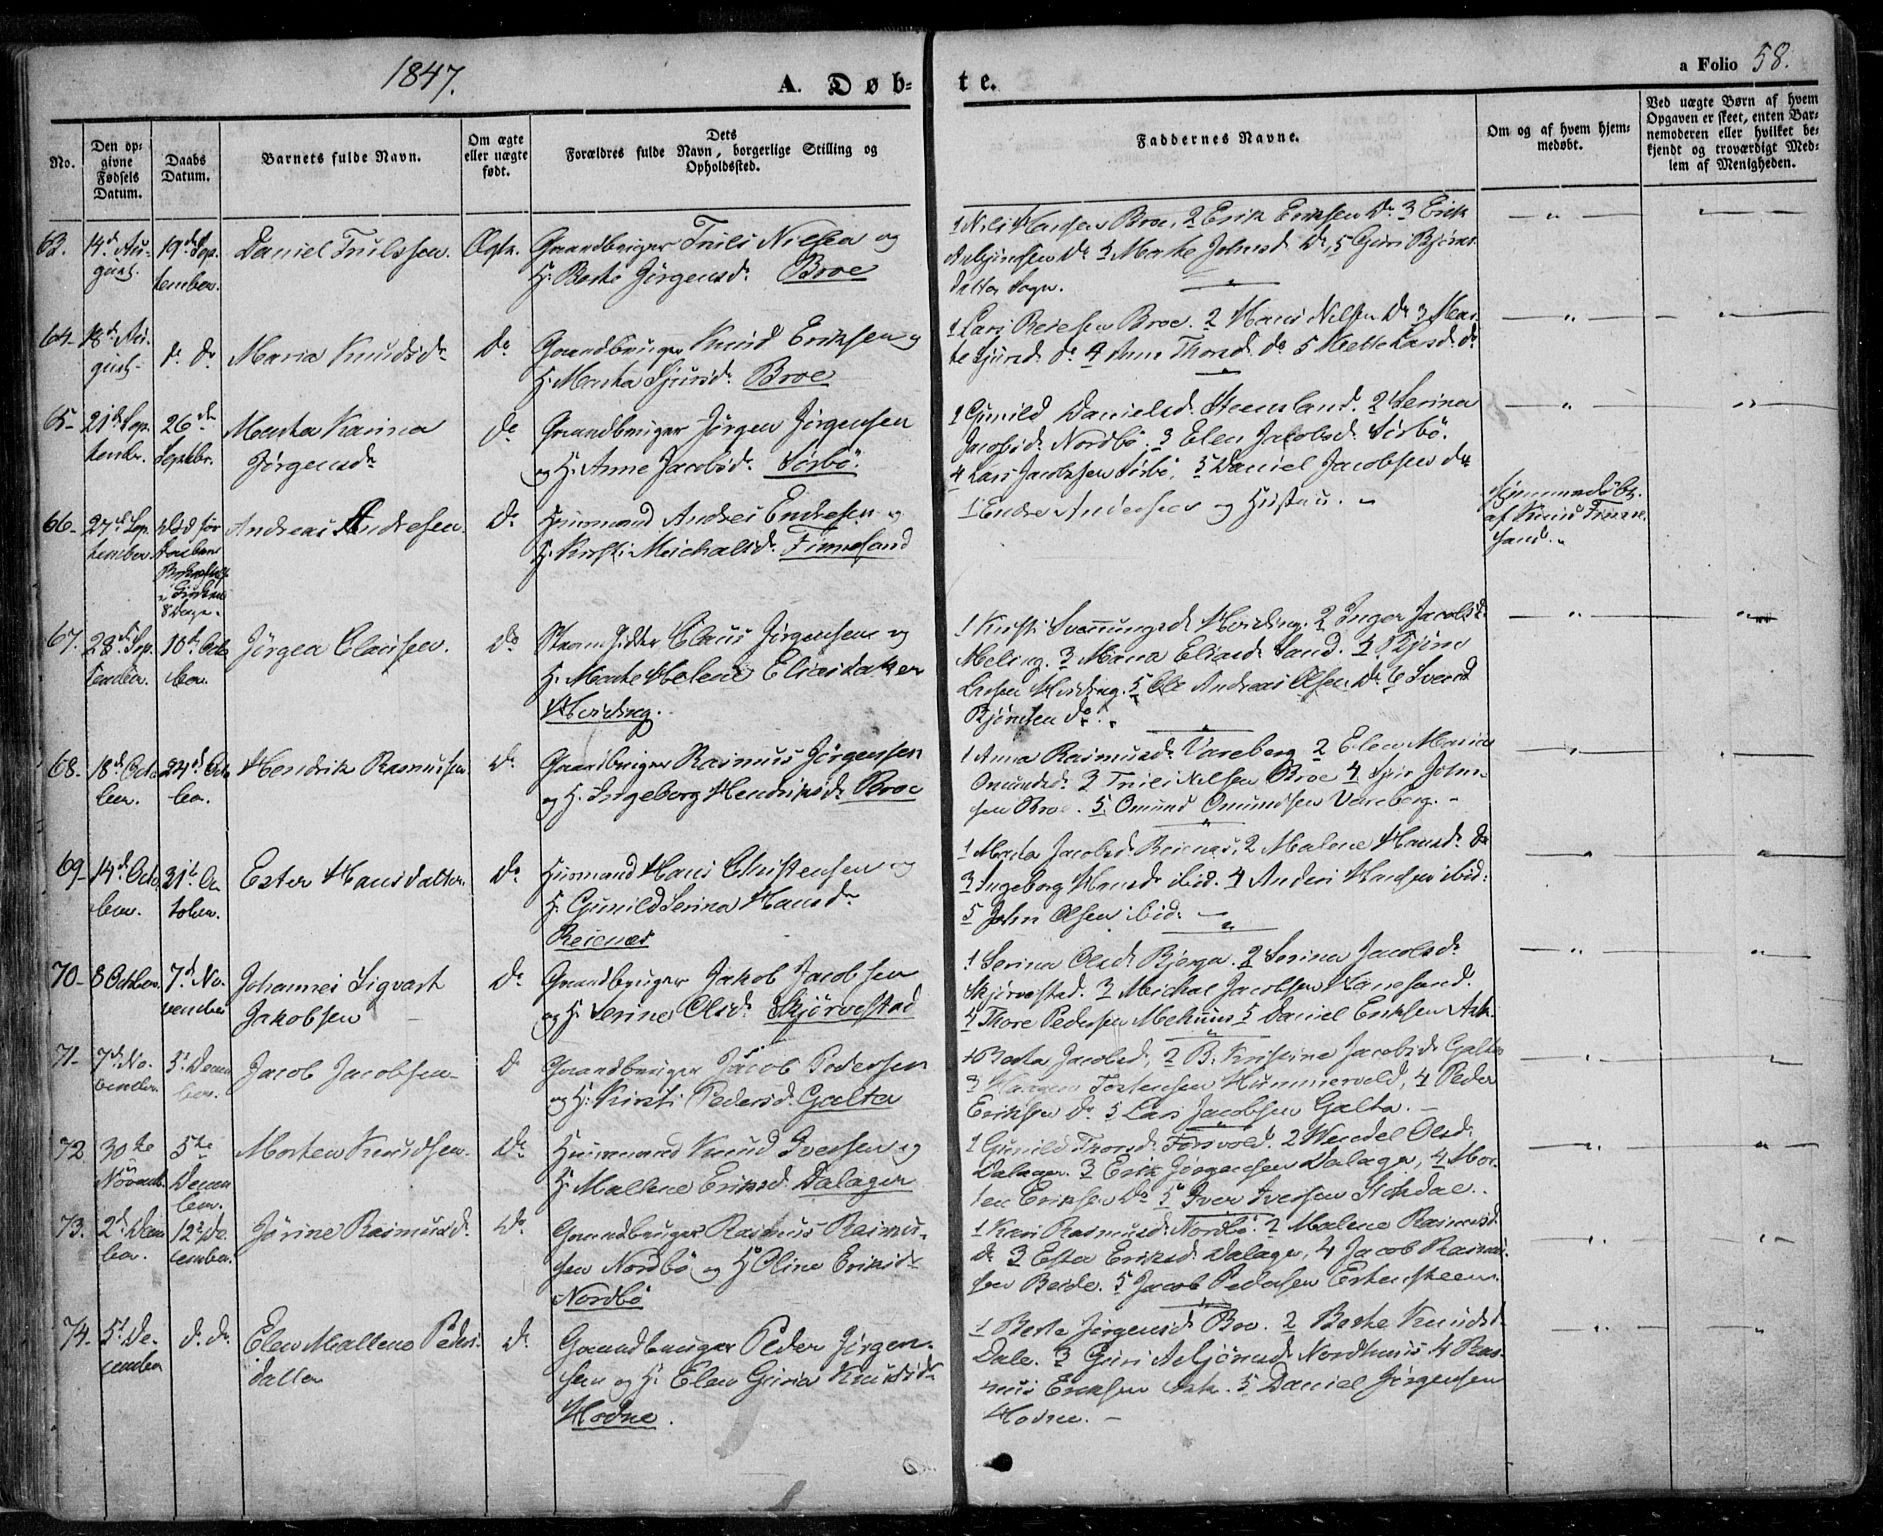 1847.
A. Døb-
te.
a Folio 58.
No.
Den op-
givne
Fødsels
Datum.
Daabs
Datum.
Barnets fulde Navn.
Om ægte
eller uægte
født.
Dets
Forældres fulde Navn, borgerlige Stilling og
Opholdssted.
Faddernes Navne.
Om og af hvem hjem-
medøbt.
Ved uægte Børn af hvem
Opgaven er skeet, enten Bar-
nemoderen eller hvilket be-
kjendt og troværdigt Med-
lem af Menigheden.
63.
14d Au-
gust.
19d Sep-
tember.
Daniel Truls sen.
Ægte.
Gaardbruger Truls Nilsen og
H. Berte Jørgensdr Broe
1 Nils Hansen Broe, 2 Erik Eriksen Do 3 Erik
Asbjørnsen Do 4 Marte Johnsd. Do, 5 Guri Bjørns
datter Sogn.
64.
18d Au-
gust.
do do
Maria Knudsdr
Do
Gaardbruger Knud Eriksen og
H. Marta Sjursdr Broe
1 Lars Reiersen Broe. 2 Hans Nilsen Do 3 Mar-
te Sjursd. do 4 Anne Thorsd. do 5 Mette Larsd. do
65-
21de Sep-
tembr.
26de
Septbr.
Marta Karina
Jørgensdr
do
Gaardbruger Jørgen Jørgensen
og H. Anne Jacobsdr Sørbö.
1 Gunild Danielsd. Steensland. 2 Serina
Jacobsdr Nordbö. 3 Elen Jakobsdr Sörbö.
4 Lars Jacobsen Sörbö, 5 Daniel Jacobsen do
66-
27d Sep-
tember
Död før
8 Dage.
Andreas Andresen.
Do
Huusmand Andres Endresen og
H. Kirsti Meichalsdr Finnesand
1 Endre Andersen og Hustru.
Hjemmedöbt.
af Knud Finne-
sand.
67.
28d Sep-
tember.
10d Octo-
ber.
Jørgen Clausen.
Do
Claus Jörgensen og
H. Marte Helene Eliasdatter
Hvidning.
1 Kirsti Svenningsd. Hvidring. 2 Inger Jacobsd.
Meling. 3 Maria Eliasd. Sand. 4 Bjørn
Larsen Hvidring. 5 Ole Andreas Olsen Do 6 Svend
Bjørnsen do
68-
18d Octo-
ber.
24d Octo-
ber.
Hendrik Rasmussen
Do
Gaardbruger Rasmus Jörgensen
og H. Ingeborg Hendriksdr Broe
1 Anna Rasmusdr Vareberg 2 Elen Maria
Omundsd. 3 Truls Nilsen Broe 4 Sjur John-
sen Broe. 5 Omund Omundsen Vareberg.
69-
14d Octo-
ber.
31te Oc-
tober.
Ester Hansdatter.
Do
Huusmand Hans Christensen og
H. Gunild Serina Hansdr
Reienæs
1 Marta Jacobsd. Reienæs, 2 Malene Hansdr Do
3 Ingeborg Hansdr ibid. 4 Anders Hansen ibid:
5 John Olsen ibid:
70-
8 October.
7d No-
vember
Johannes Sigvart
Jakobsen
Do
Gaardbruger Jakob Jacobsen
og H. Serine Olsdr Skjörvestad
1 Serina Olsdr Bjerga. 2 Serina Jacobsdr
Skjörvestad. 3 Meichal Jacobsen Hanesand.
4 Thore Pedersen Mehuus 5 Daniel Eriksen Ask.
71-
7d No-
vember.
5t Decem-
ber.
Jacob Jacobsen
Do
Gaardbruger Jacob Pedersen
og H. Kirsti Pedersd. Galta
1 Berta Jacobsd, 2 B. Kristine Jacobsdr Galta
3 Torstensen Hummervold, 4 Peder
Eriksen Do 5 Lars Jacobsen Galta.
72.
30te
Novemb.
5te
Decem-
ber.
Morten Knudsen.
Do
Huusmand Knud Iversen og
H. Mallene Eriksd. Dalager
1 Gunild Thorsdr 2 Wendel Olsdr
Dalager. 3 Erik Jørgensen Dalager, 4 Mor-
ten Eriksen Do 5 Iver Iversen Stokdal.
73.
2d Decem-
ber.
12te De-
cember.
Jörine Rasmusdr
Do
Gaardbruger Rasmus Rasmus-
sen Nordbö og H. Oline Eriksdr
Nordbö
1 Kari Rasmusdr Nordbö. 2 Malene Rasmusd.
do 3 Ester Eriksd. Dalager, 4 Jacob Rasmus-
sen Beide. 5 Jacob Pedersen Eskensteen.
74.
5t De-
cember
do do
Elen Mallene Peders-
datter
Do
Gaardbruger Peder Jörgen-
sen og H. Elen Guria Knudsdr
Hodne.
1 Berte Jörgensdr Broe. 2 Berte Knudsd.
Dale. 3 Guri Asbjörnsd. Nordhuus 4 Ras-
mus Eriksen Ask. 5 Daniel Jörgensen
Hodne.